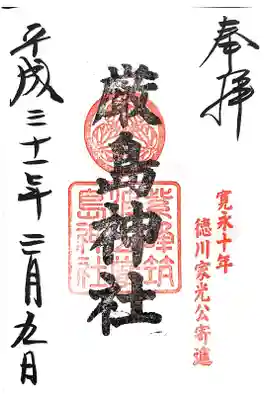 奉拝
寛永十年
徳川家光公寄進
厳島神社
平成三十一年三月九日